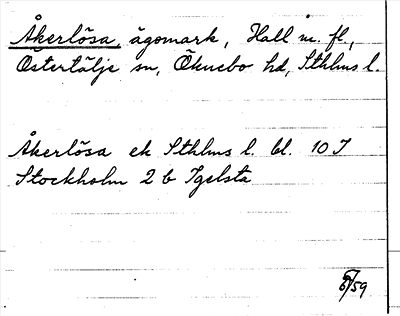 Åkerlösa, ägomark, Hall m. fl.,
Östertälje sn, Öknebo hd, Sthlms l.
Åkerlösa ek Sthlms l. bl. 10 I
Stockholm 2 b Igelsta
6/59